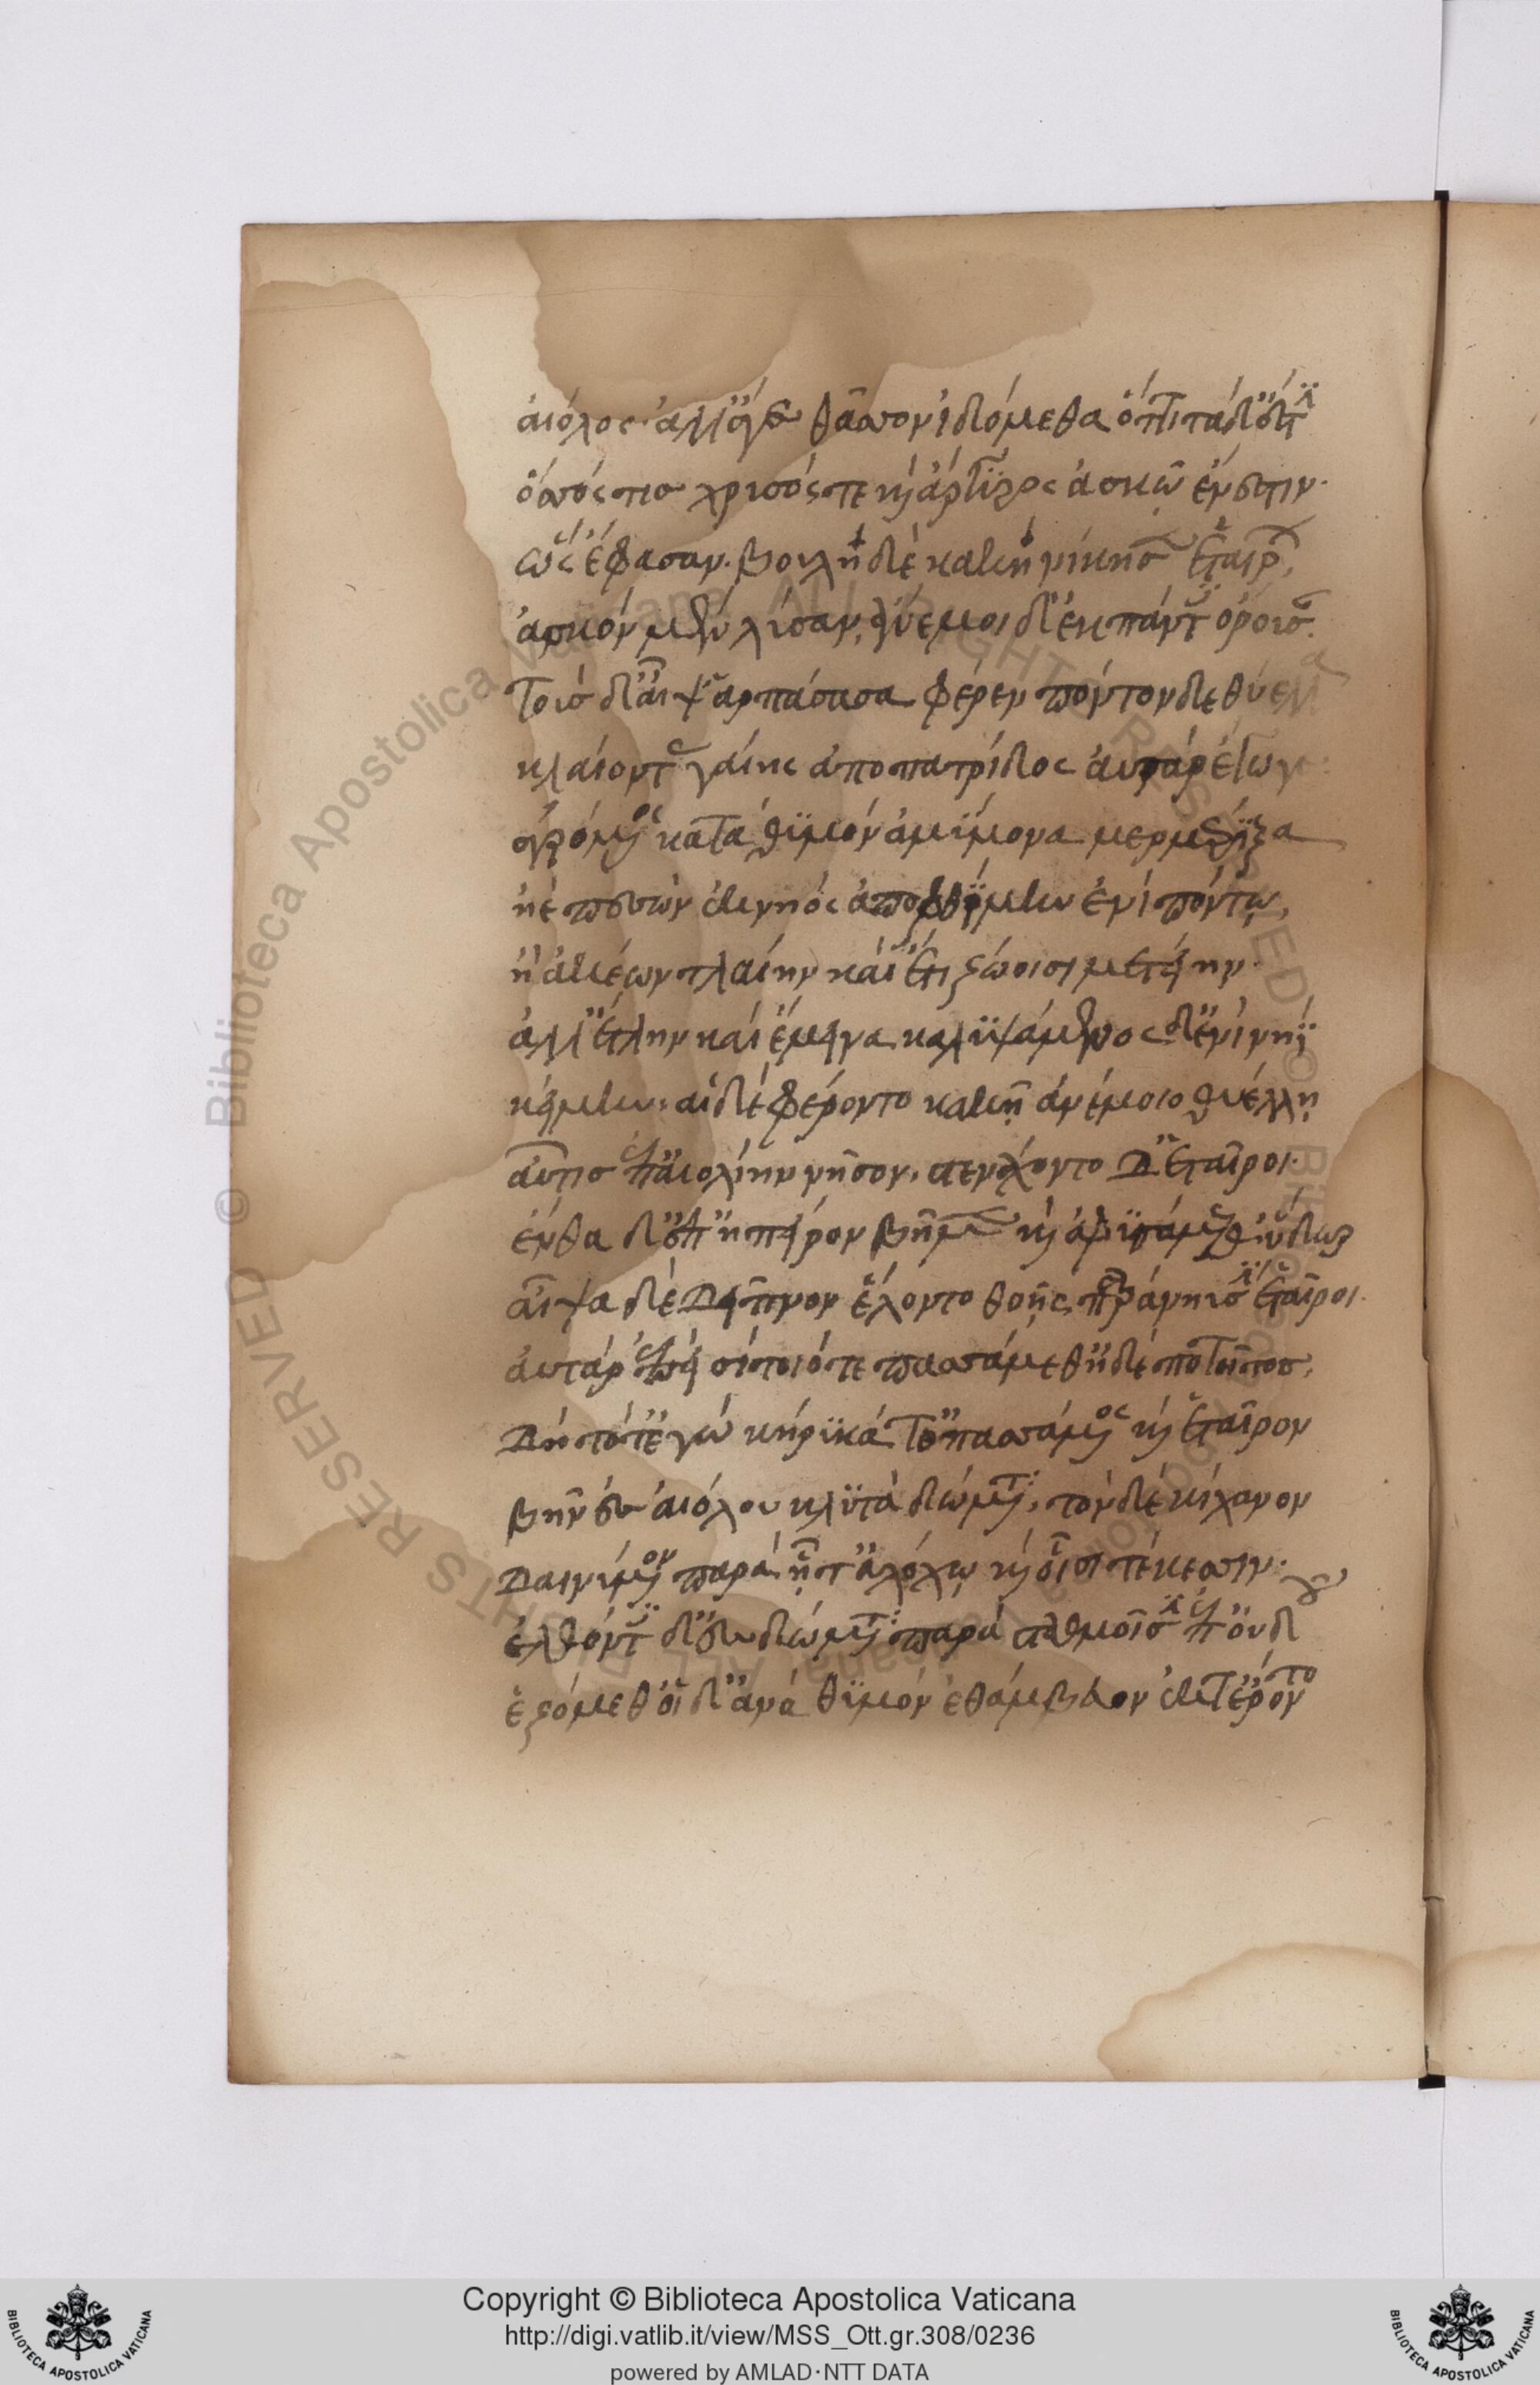 αἰόλος· ἀλλ' ἄγε θᾶσσον ἰδόμεθα ὅττι τάδ' ἐστὶν
ὅσσός τις χρυσός τε καὶ ἄργυρος ἀσκῷ ἔνεστιν·
ὣς ἔφασαν· βουλὴ δὲ κακὴ νίκησεν ἑταίρων,
ἀσκὸν μὲν λύσαν, ἄνεμοι δ' ἐκ πάντες ὄρουσαν.
τοὺς δ' αἶψ' ἁρπάσασα φέρεν πόντονδε θύελλα
κλαίοντας γαίης ἀπὸ πατρίδος αὐτὰρ ἔγωγε
ἐγρόμενος κατὰ θυμὸν ἀμύμονα μερμήριξα
ἠὲ πεσὼν ἐκ νηὸς ἀποφθίμην ἐνὶ πόντῳ,
ἢ ἀκέων τλαίην καὶ ἔτι ζώοισι μετείην·
ἀλλ' ἔτλην καὶ ἔμεινα, καλυψάμενος δ' ἐνὶ νηῒ
κείμην· αἱ δὲ φέροντο κακῇ ἀνέμοιο θυέλλῃ
αὖτις ἐπ' αἰολίην νῆσον, στενάχοντο δ' ἑταῖροι·
ἔνθα δ' ἐπ' ἠπείρου βῆμεν καὶ ἀφυσσάμεθ' ὕδωρ
αἶψα δὲ δεῖπνον ἕλοντο θοῇς παρὰ νηυσὶν ἑταῖροι·
αὐτὰρ ἐπεὶ σίτοιό τε πασσάμεθ' ἠδὲ ποτῆτος,
δὴ τότ' ἐγὼ κήρυκά τ' ὀπασσάμενος καὶ ἑταῖρον
βῆν εἰς αἰόλου κλυτὰ δώματα, τὸν δὲ κίχανον
δαινύμενον παρὰ ᾗ τ' ἀλόχῳ καὶ οἷσι τέκεσσιν·
ἐλθόντες δ' ἐς δώματα παρὰ σταθμοῖσιν ἐπ' οὐδοῦ
ἑζόμεθ' οἱ δ' ἀνὰ θυμὸν ἐθάμβεον ἐκ τ' ἐρέοντο
Copyright © Biblioteca Apostolica Vaticana
http://digi.vatlib.it/view/MSS_Ott.gr.308/0236
powered by AMLAD·NTT DATA